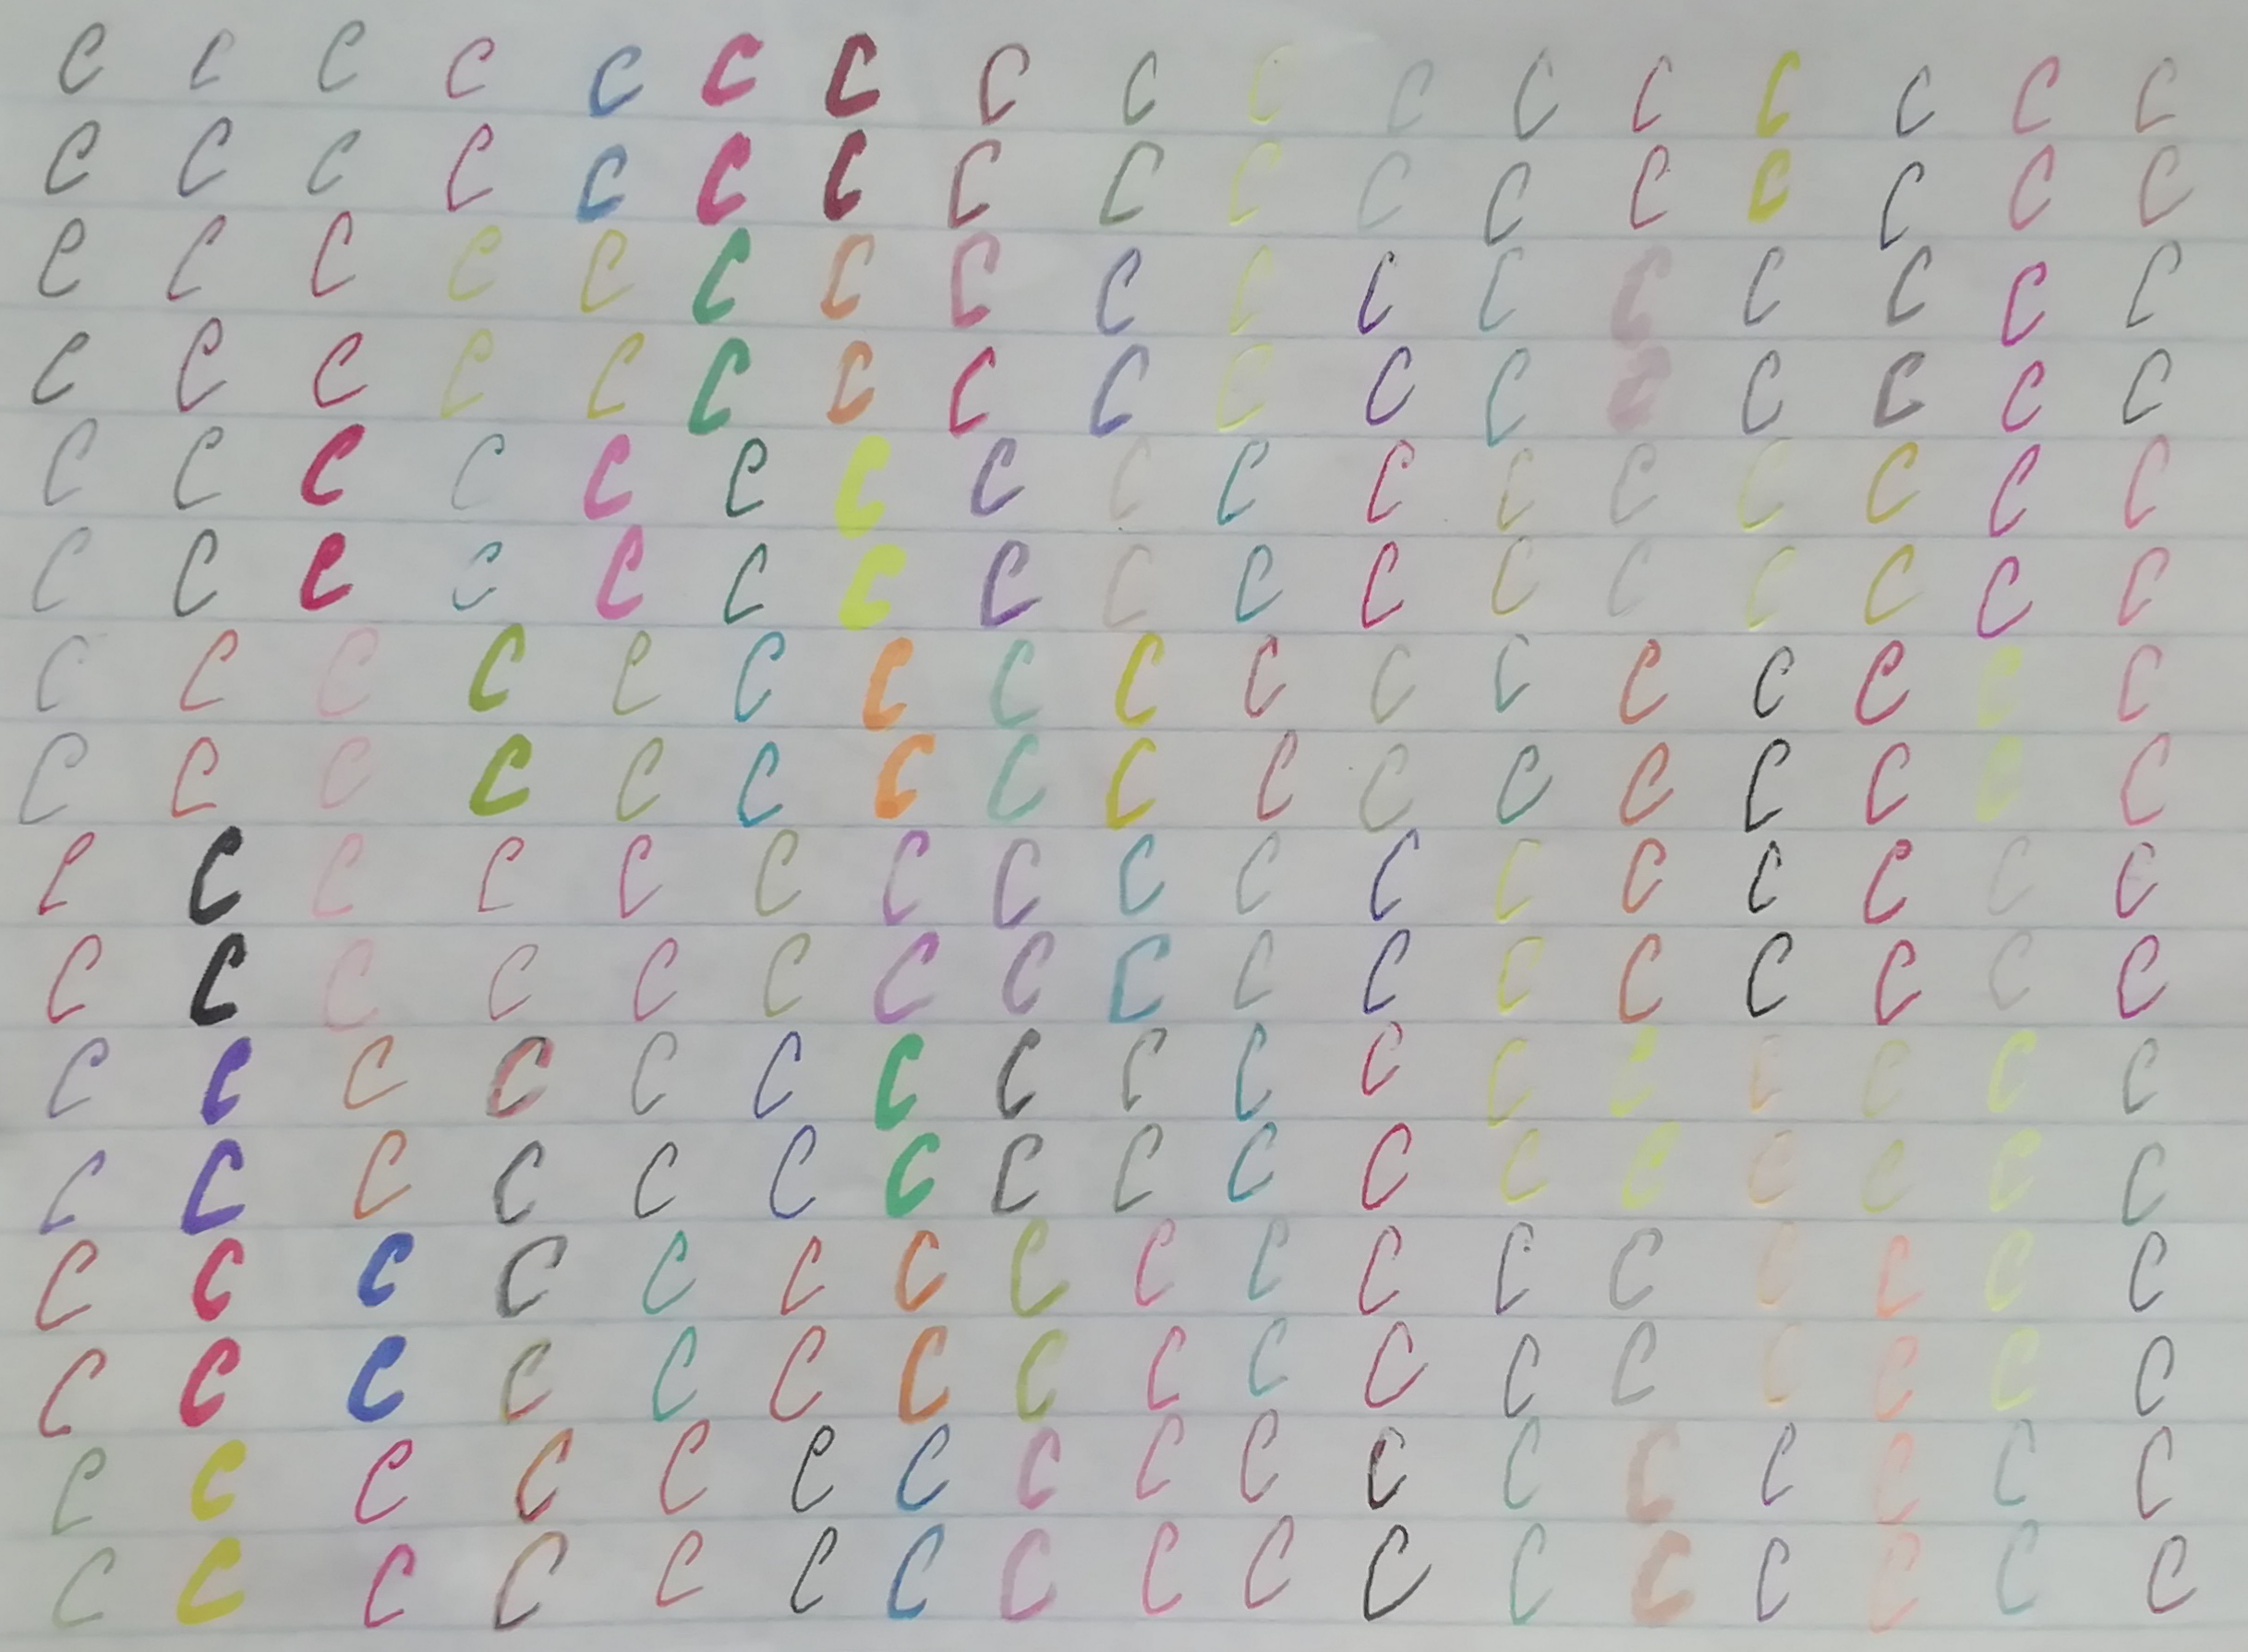 C C C C C C C C C C C C C C C C C
C C C C C C C C C C C C C C C C C
C C C C C C C C C C C C C C C C C
C C C C C C C C C C C C C C C C C
C C C C C C C C C C C C C C C C C
C C C C C C C C C C C C C C C C C
C C C C C C C C C C C C C C C C C
C C C C C C C C C C C C C C C C C
C C C C C C C C C C C C C C C C C
C C C C C C C C C C C C C C C C C
C C C C C C C C C C C C C C C C C
C C C C C C C C C C C C C C C C C
C C C C C C C C C C C C C C C C C
C C C C C C C C C C C C C C C C C
C C C C C C C C C C C C C C C C C
C C C C C C C C C C C C C C C C C